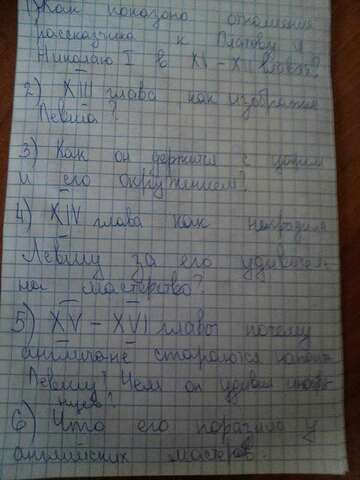 1) Как показано отношение
рассказчика к Платову и
Николаю I в XI – XII главах?
2) XIII глава как изображён
Левша?
3) Как он держится с царём
и его окружением?
4) XIV глава как наградили
Левшу за его удивитель-
ное мастерство?
5) XV – XVI главы почему
англичане стараются
Левшу? Чем он удивил иност-
ранцев?
6) Что его поразило у
английских мастеров.